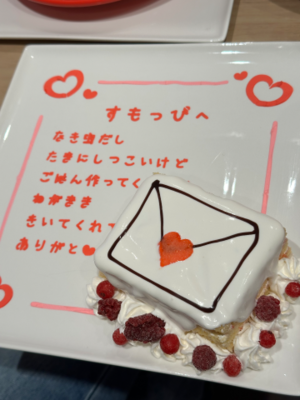 すもっぴへ
なき虫だし
たまにしつこいけど
ごはん作ってく
わがまま
きいてくれて
ありがと♥